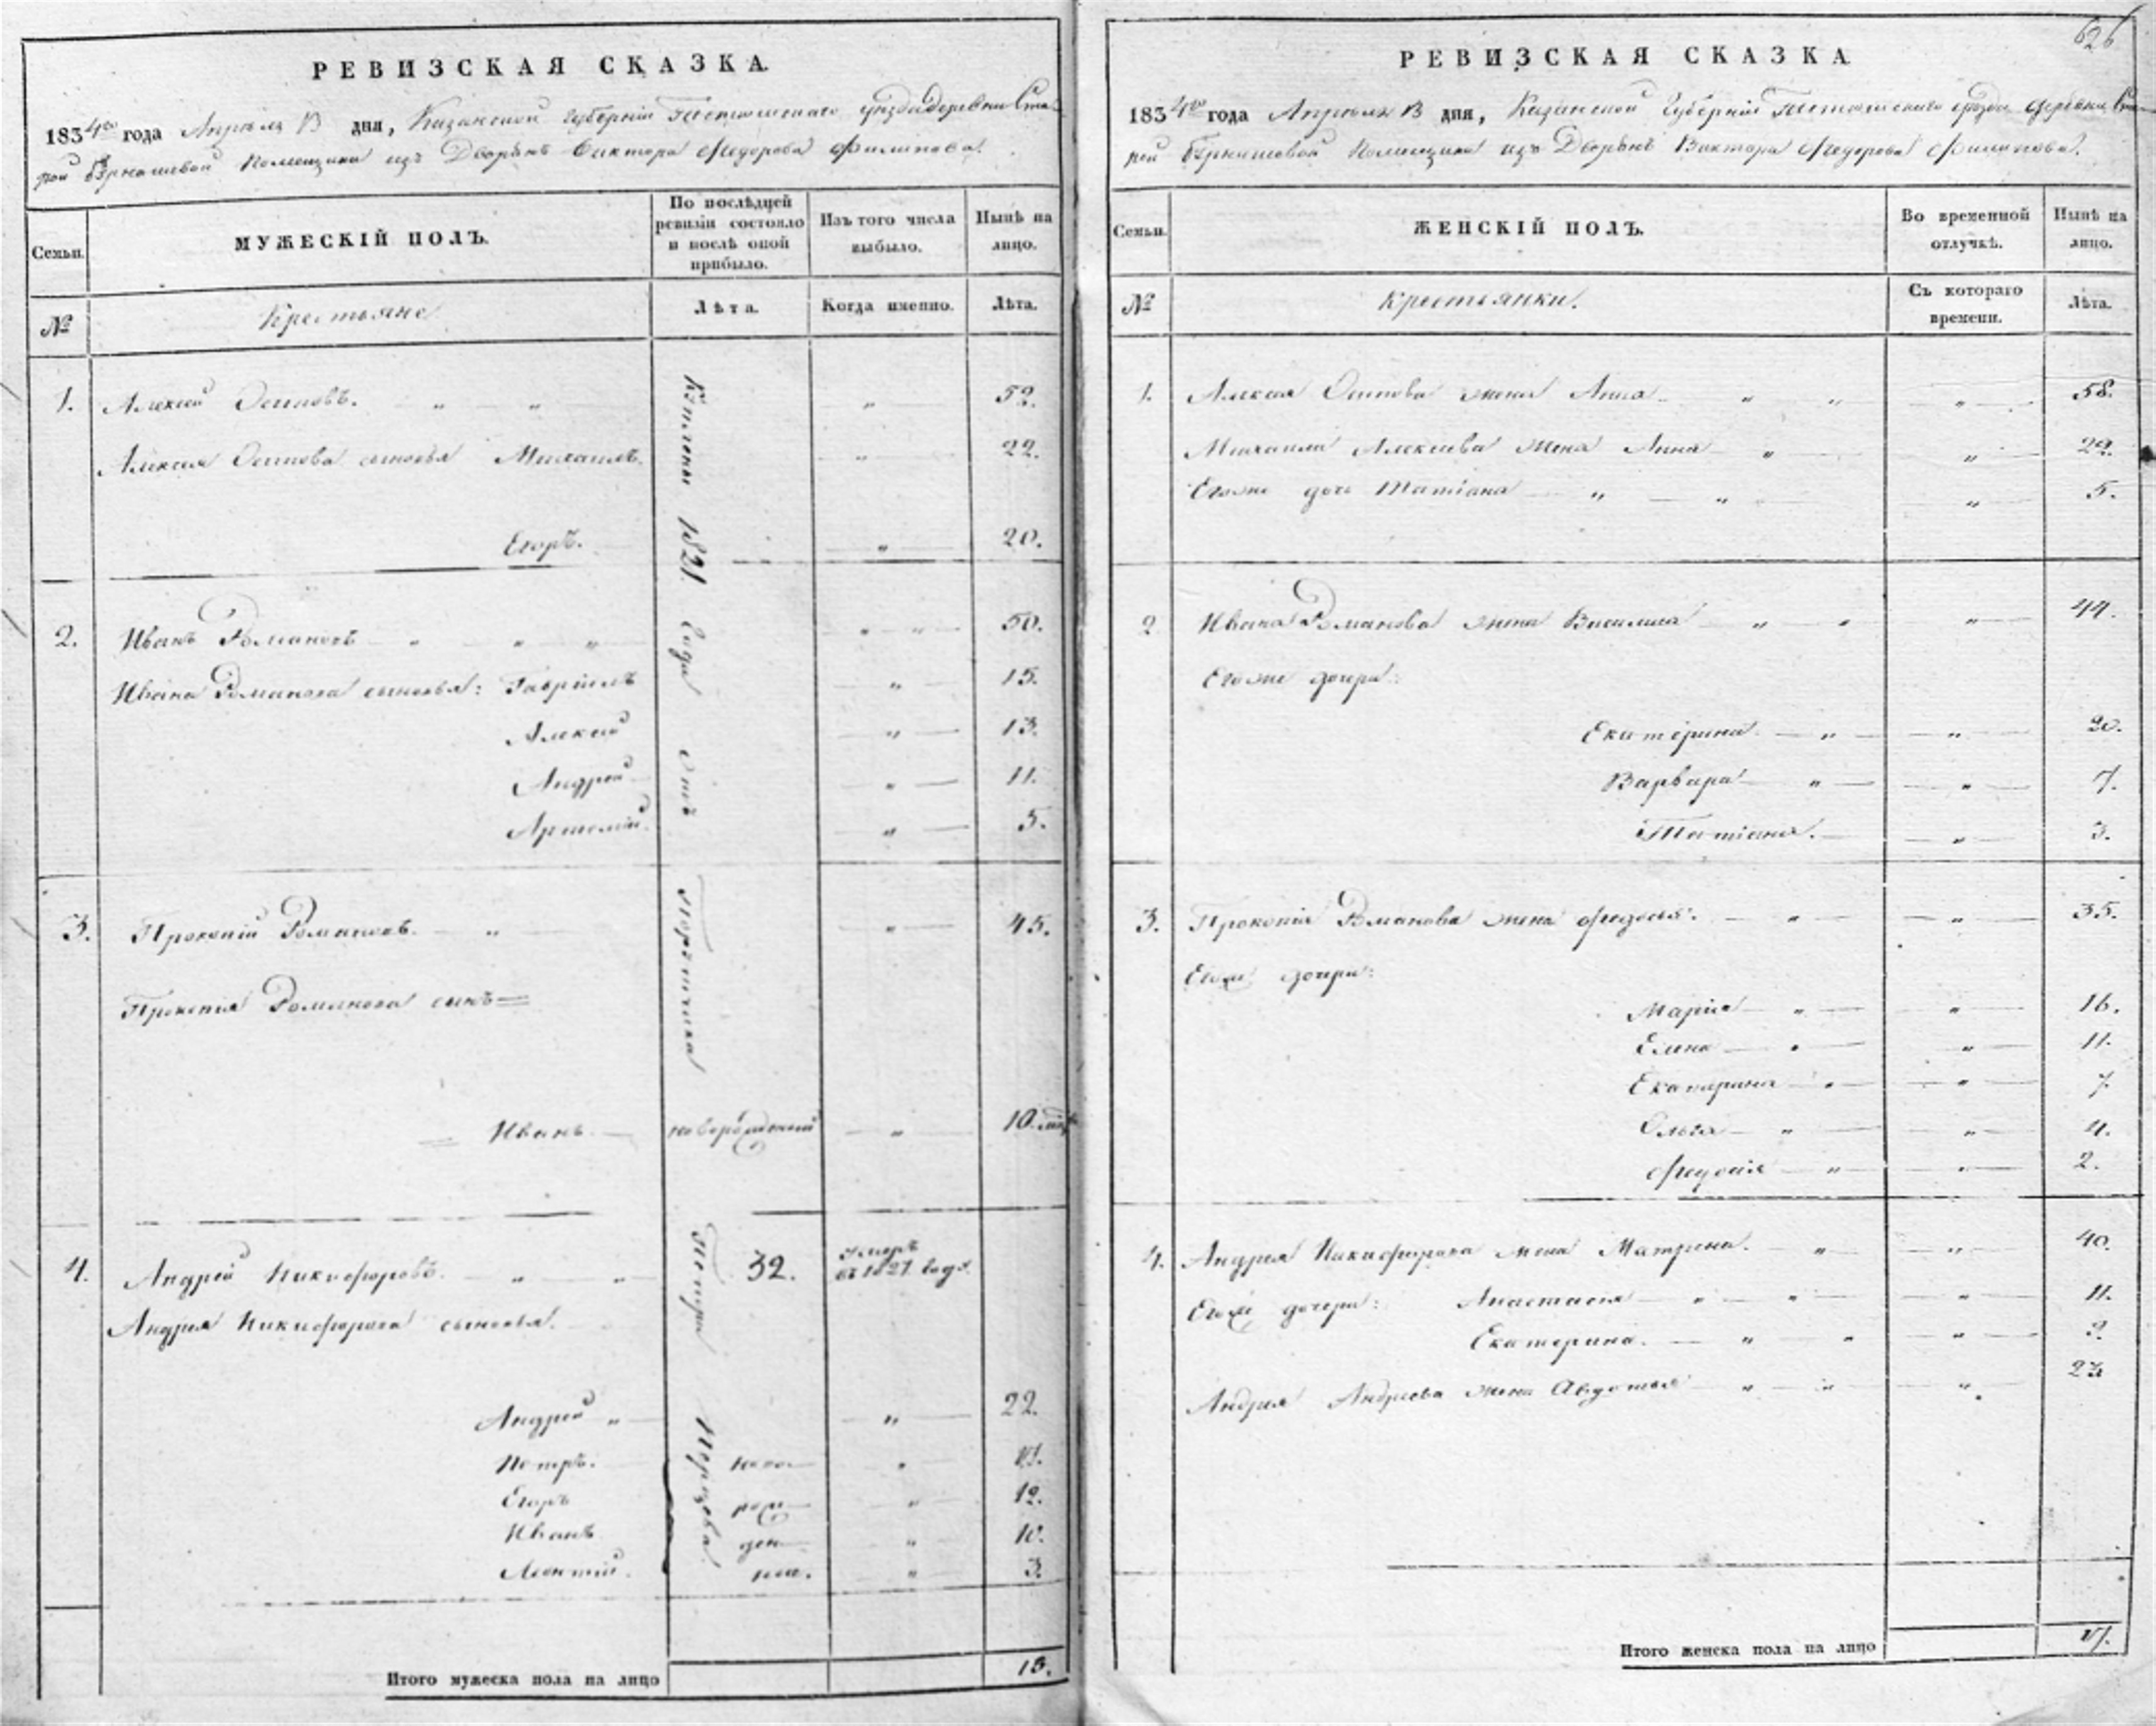 РЕВИЗСКАЯ СКАЗКА.
1834го года Апрѣля В дня, Казанской губерніи Тетюшскаго уѣзда деревни Ста-
рой Бурнашевой Помещика изъ Дворянъ Виктора Федорова Филипова.
Семьи.
МУЖЕСКІЙ ПОЛЪ.
По послѣдней ревизіи состояло и послѣ оной прибыло.
Изъ того числа выбыло.
Нынѣ на лицо.
№
Крестьяне
Лѣта.
Когда именно.
Лѣта.
Куплены 1821. года отъ Порутчика Петра
1. Алексей Осиповъ. „ „ „ 52.
Алексея Осипова сыновья Михаилъ. „ 22.
Егоръ. „ 20.
2. Иванъ Романовъ „ „ „ „ „ 50.
Ивана Романова сыновья: Гаврiилъ „ 15.
Алексей „ 13.
Андрей „ 11.
Артемiй. „ 5.
3. Прокопiй Романовъ. „ „ 45.
Прокопия Романова сынъ
Иванъ новорожденный „ 10.
4. Андрей Никифоровъ. „ „ 32. умеръ въ 1827 году.
Андрея Никифорова сыновья.
Андрей „ „ 22.
Петръ. ново „
Егоръ рож „ 12.
Иванъ ден „ 10.
Леонтiй. ные. „ 3.
Итого мужеска пола на лицо 15.
626
РЕВИЗСКАЯ СКАЗКА
1834го года Апрѣля В дня, Казанской Губернiи Тетюшскаго уѣзда деревни Ста-
рой Бурнашевой Помещика изъ Дворянъ Виктора Федорова Филипова.
Семьи.
ЖЕНСКІЙ ПОЛЪ.
Во временной отлучкѣ.
Нынѣ на лицо.
№
Крестьянки.
Съ котораго времени.
Лѣта.
1. Алексея Осипова жена Анна „ „ „ 58.
Михаила Алексеева жена Анна „ „ 22.
Егоже дочь Татiана „ „ „ 5.
2 Ивана Романова жена Василиса „ „ „ 44.
Егоже дочери:
Екатерина. „ „ 20.
Варвара „ „ 7.
Татiана. „ 3.
3. Прокопiя Романова жена Федосья. „ „ 35.
Егоже дочери:
Марiя „ „ 16.
Елена „ „ 11.
Екатерина „ „ 7.
Ольга „ „ 4.
„ „ 2.
4. Андрея Никифорова жена Матрена. „ „ 40.
Егоже дочери: Анастасия „ „ „ 11.
Екатерина. „ „ „ 9.
Андрея Андреева жена Авдотья „ „ „
Итого женска пола на лицо